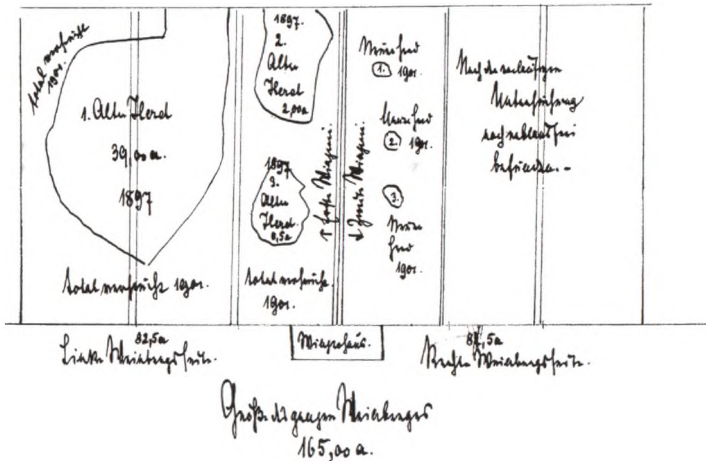 total verseucht
1901.
1. Alter Herd
39,00 a.
1897
total verseucht 1901.
1897.
2.
Alter
Herd
2,00a
1897
3.
Alter
Herd.
0,5a
total verseucht.
1901.
Neuer Herd
1. 1901.
Neuer Herd
2. 1901.
3.
Neuer
Herd
1901.
Nach der vorläufigen
Untersuchung
noch reblausfrei
befunden.-
82,5a
Linke Weinbergsseite.
82,5a
Rechte Weinbergsseite.
Größe des ganzen Weinberges
165,00 a.